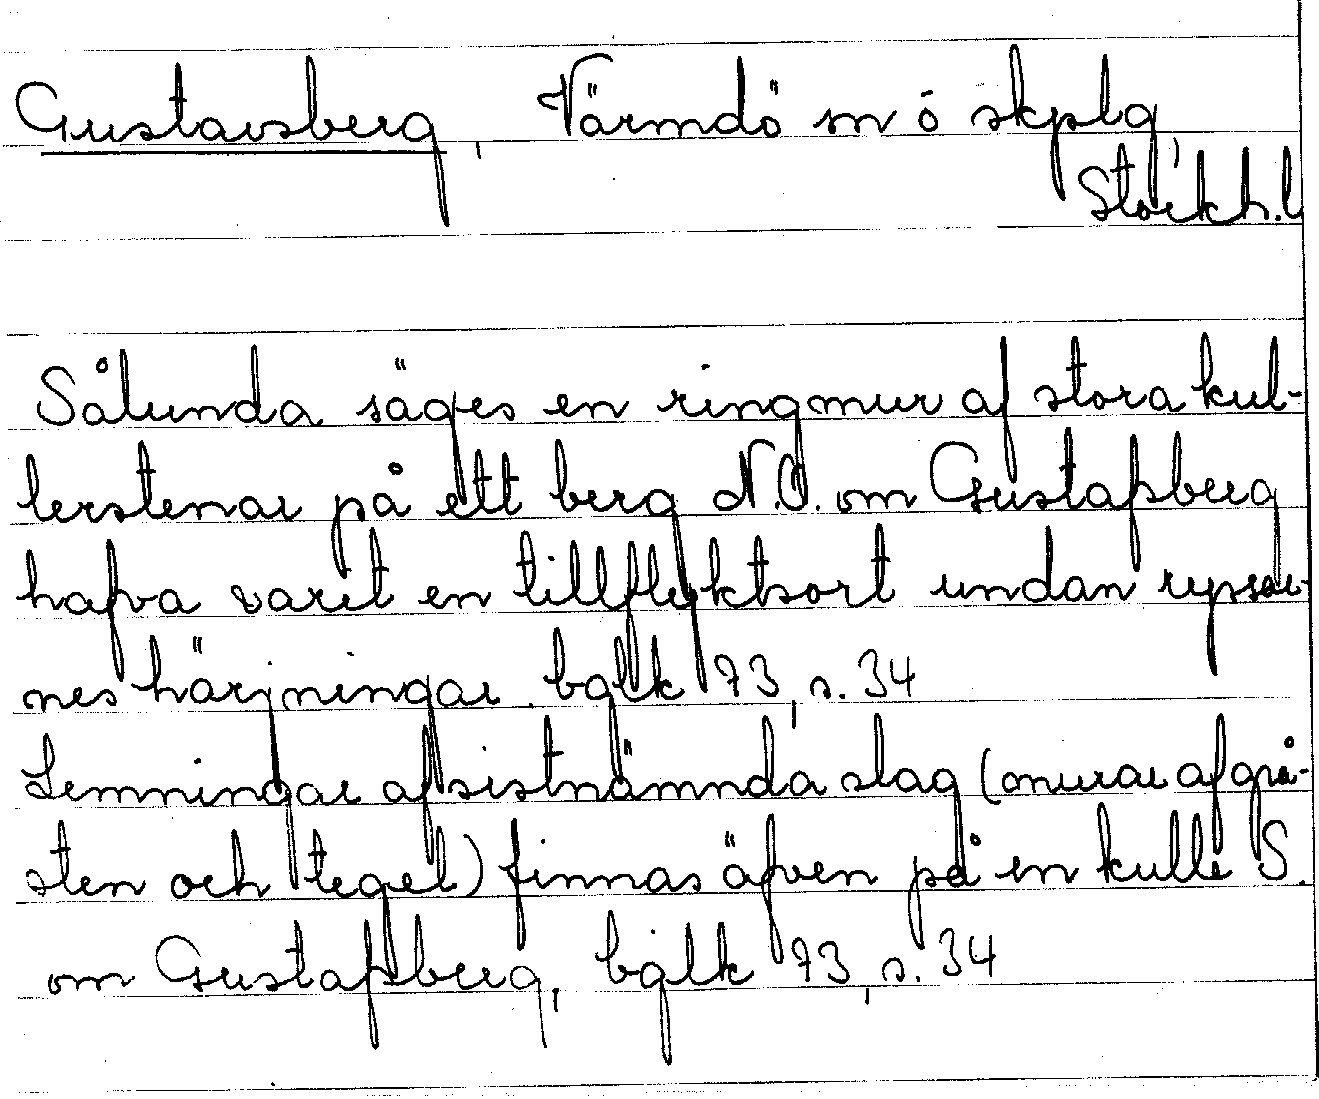 Gustavsberg, Värmdö sn ó skplg,
Stockh. l
Sålunda säges en ringmur af stora kul-
lerstenar på ett berg N.O. om Gustafsberg
hafva varit en tillflyktsort undan ryssar-
nes härjningar. bqlk 73, s. 34
Lemningar af sistnämnda slag (murar af grå-
sten och tegel) finnas äfven på en kulle S.
om Gustafsberg, bqlk 73, s. 34